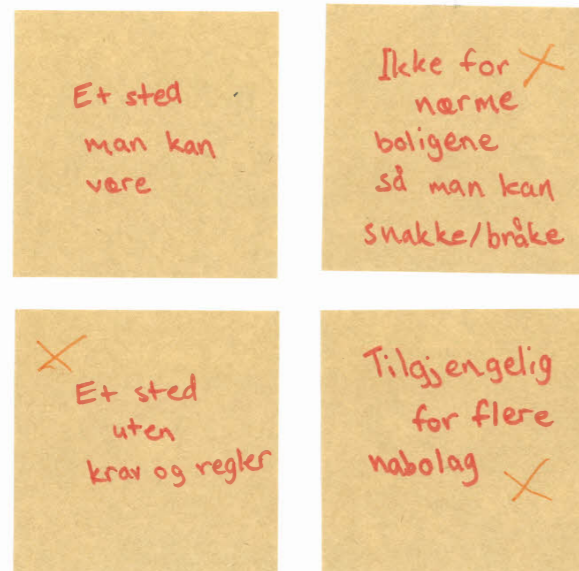 Et sted
man kan
være
Ikke for
nærme
boligene
så man kan
snakke/bråke
Et sted
uten
krav og regler
Tilgjengelig
for flere
nabolag